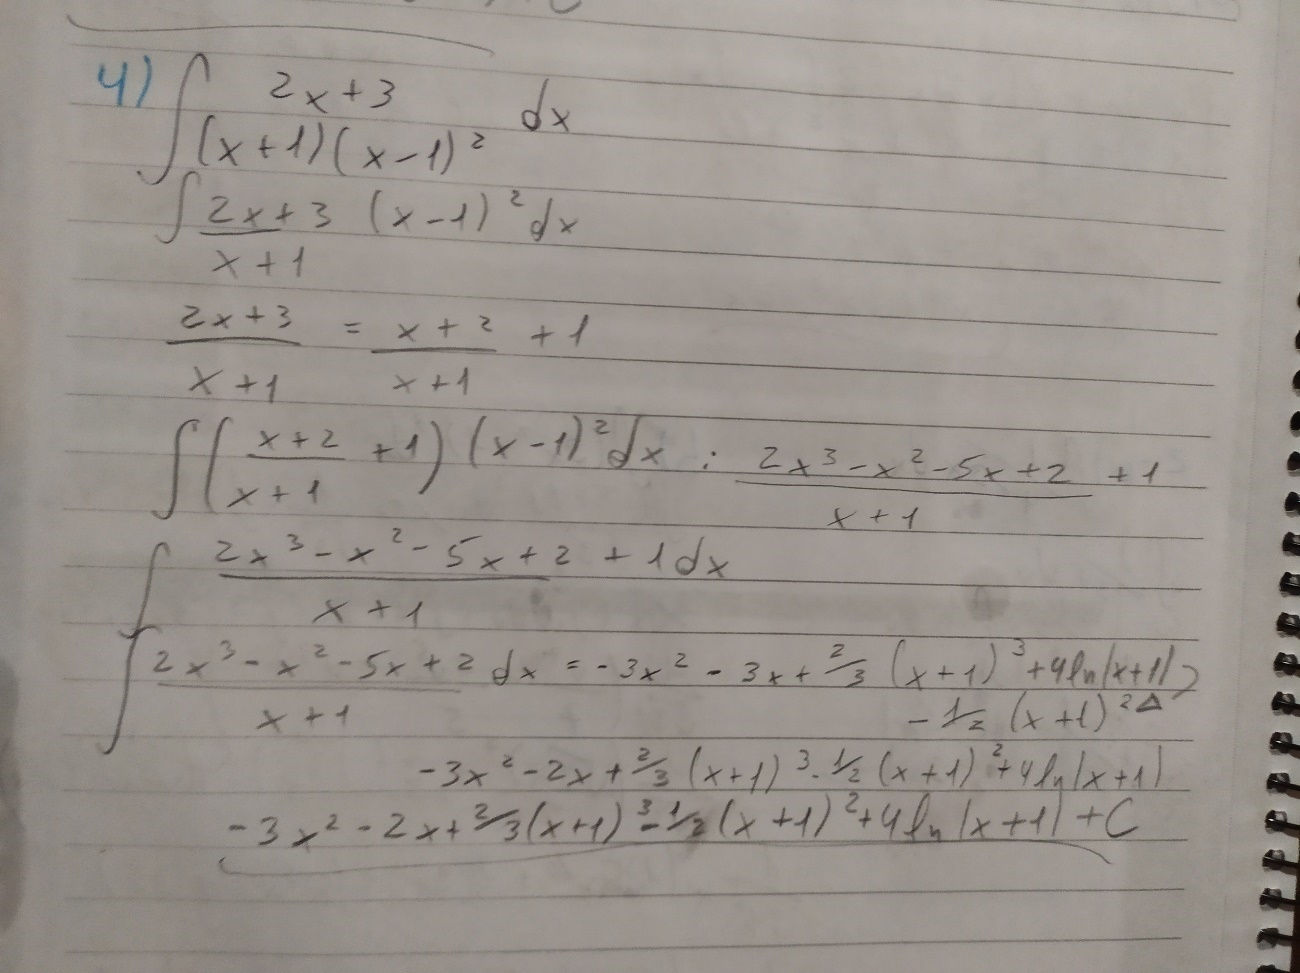 4) ∫ (2x+3)/((x+1)(x-1)²) dx
∫ (2x+3)/(x+1) (x-1)² dx
(2x+3)/(x+1) = (x+2)/(x+1) + 1
∫ ((x+2)/(x+1) + 1) (x-1)² dx : (2x³-x²-5x+2)/(x+1) + 1
∫ (2x³-x²-5x+2)/(x+1) + 1 dx
∫ (2x³-x²-5x+2)/(x+1) dx = -3x² - 3x + 2/3 (x+1)³ + 4ln|x+1|
- 1/2 (x+1)² Δ
-3x² - 2x + 2/3 (x+1)³ - 1/2 (x+1)² + 4ln|x+1|
-3x² - 2x + 2/3 (x+1)³ - 1/2 (x+1)² + 4ln|x+1| + C